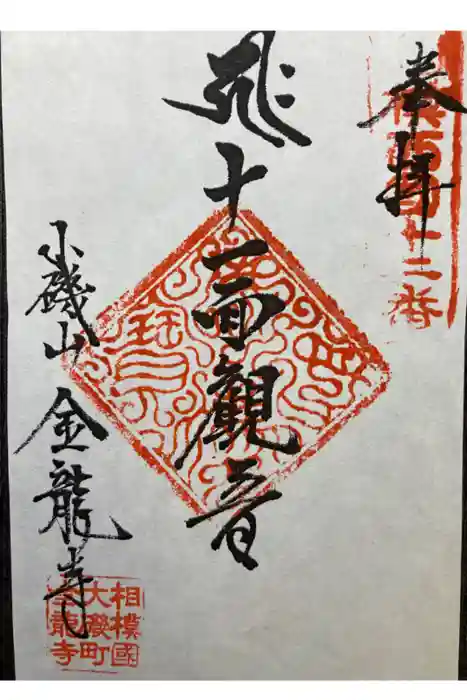 奉拝
飛十一面観音
小磯山 金龍寺
相模國
大磯町
金龍寺